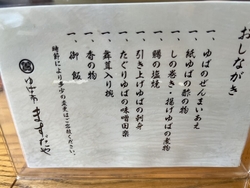 おしながき
一、ゆばのぜんまいあえ
一、紙ゆばの酢の物
一、しの巻き・揚げゆばの煮物
一、鱒の塩焼
一、引き上げゆばの刺身
一、たぐりゆばの味噌田楽
一、舞茸入り椀
一、香の物
一、御飯
時節により多少の変更はご容赦ください。
ゆば亭 ますだや